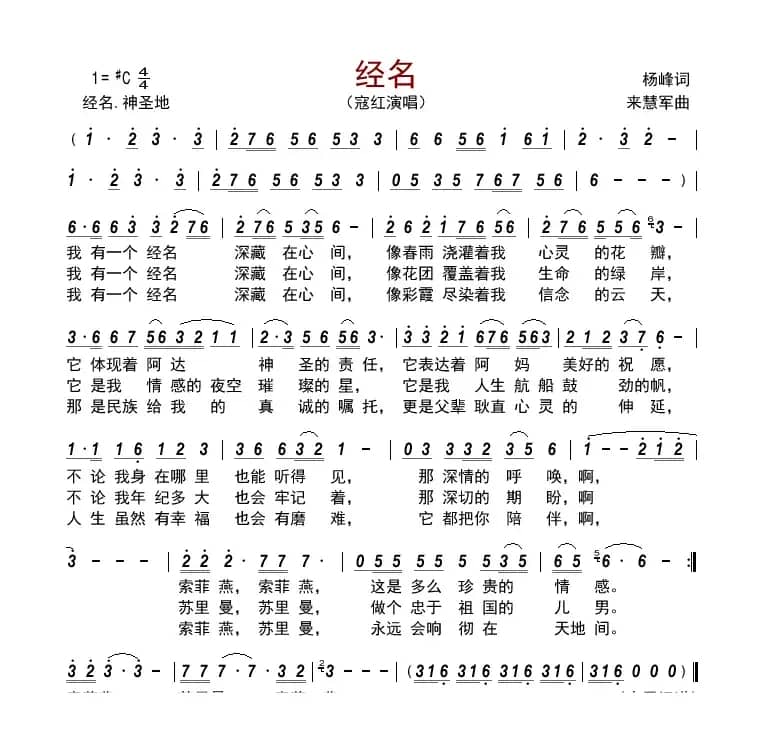 经名
1=♯C 4/4
杨峰词
经名.神圣地
（寇红演唱）
来慧军曲
( 1 · 2 3 · 3 | 2 7 6 5 6 5 3 3 | 6 6 5 6 1 6 1 | 2 · 3 2 - |
1 · 2 3 · 3 | 2 7 6 5 6 5 3 3 | 0 5 3 5 7 6 7 5 6 | 6 - - - )
6 · 6 6 3 3 2 7 6 | 2 7 6 5 3 5 6 - | 2 6 2 1 7 6 5 6 | 2 7 6 5 5 6 3 -
我 有一个 经名 深藏 在心 间， 像春雨 浇灌着我 心灵 的花 瓣，
我 有一个 经名 深藏 在心 间， 像花团 覆盖着我 生命 的绿 岸，
我 有一个 经名 深藏 在心 间， 像彩霞 尽染着我 信念 的云 天，
3 · 6 6 7 5 6 3 2 1 1 | 2 · 3 5 6 5 6 3 · | 3 3 2 1 6 7 6 5 6 3 | 2 1 2 3 7 6 -
它 体现着 阿达 神 圣的 责 任，它表达着 阿 妈 美好的 祝 愿，
它 是我 情感的 夜空 璀 璨的 星， 它是我 人生 航 船 鼓 劲的帆，
那 是民族 给 我 的 真 诚的 嘱 托，更是父辈 耿直 心 灵 的 伸 延，
1 · 1 1 6 1 2 3 | 3 6 6 3 2 1 - | 0 3 3 3 2 3 5 6 | 1 - - 2 1 2
不 论 我身 在哪 里 也能 听得 见， 那 深情的 呼 唤，啊，
不 论 我年 纪多 大 也会 牢记 着， 那 深切的 期 盼，啊
人 生 虽然 有幸 福 也会 有磨 难， 它 都把你 陪 伴，啊，
3 - - - | 2 2 2 · 7 7 7 · | 0 5 5 5 5 5 3 5 | 6 5 6 · 6 - :||
索菲 燕， 索菲 燕， 这是 多么 珍 贵的 情 感。
苏里 曼，苏里 曼， 做个 忠于 祖 国的 儿 男。
索菲 燕，苏里 曼， 永远 会响 彻 在 天地 间。
3 2 3 · 3 | 7 7 7 · 7 · 3 2 | 3 - - - | (3 1 6 3 1 6 3 1 6 3 1 6 | 3 1 6 0 0 0 )